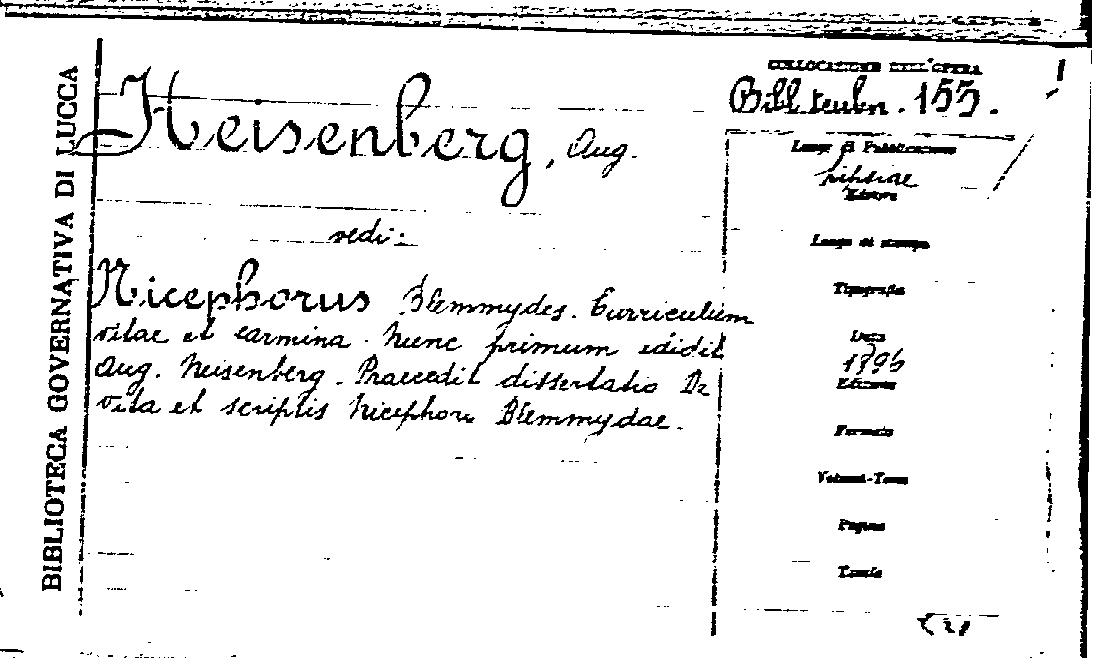 BIBLIOTECA GOVERNATIVA DI LUCCA
Heisenberg, Aug.
vedi:
Nicephorus Blemmydes. Curriculum
vitae et carmina. Nunc primum edidit
Aug. Heisenberg. Praecedit dissertatio De
vita et scriptis Nicephori Blemmydae.
COLLOCAZIONE DELL'OPERA
Bibl. teubn. 155.
Luogo di Pubblicazione
Lipsiae
Editore
Luogo di stampa
Tipografia
Data
1896
Edizione
Formato
Volumi-Tomo
Pagine
Tavole